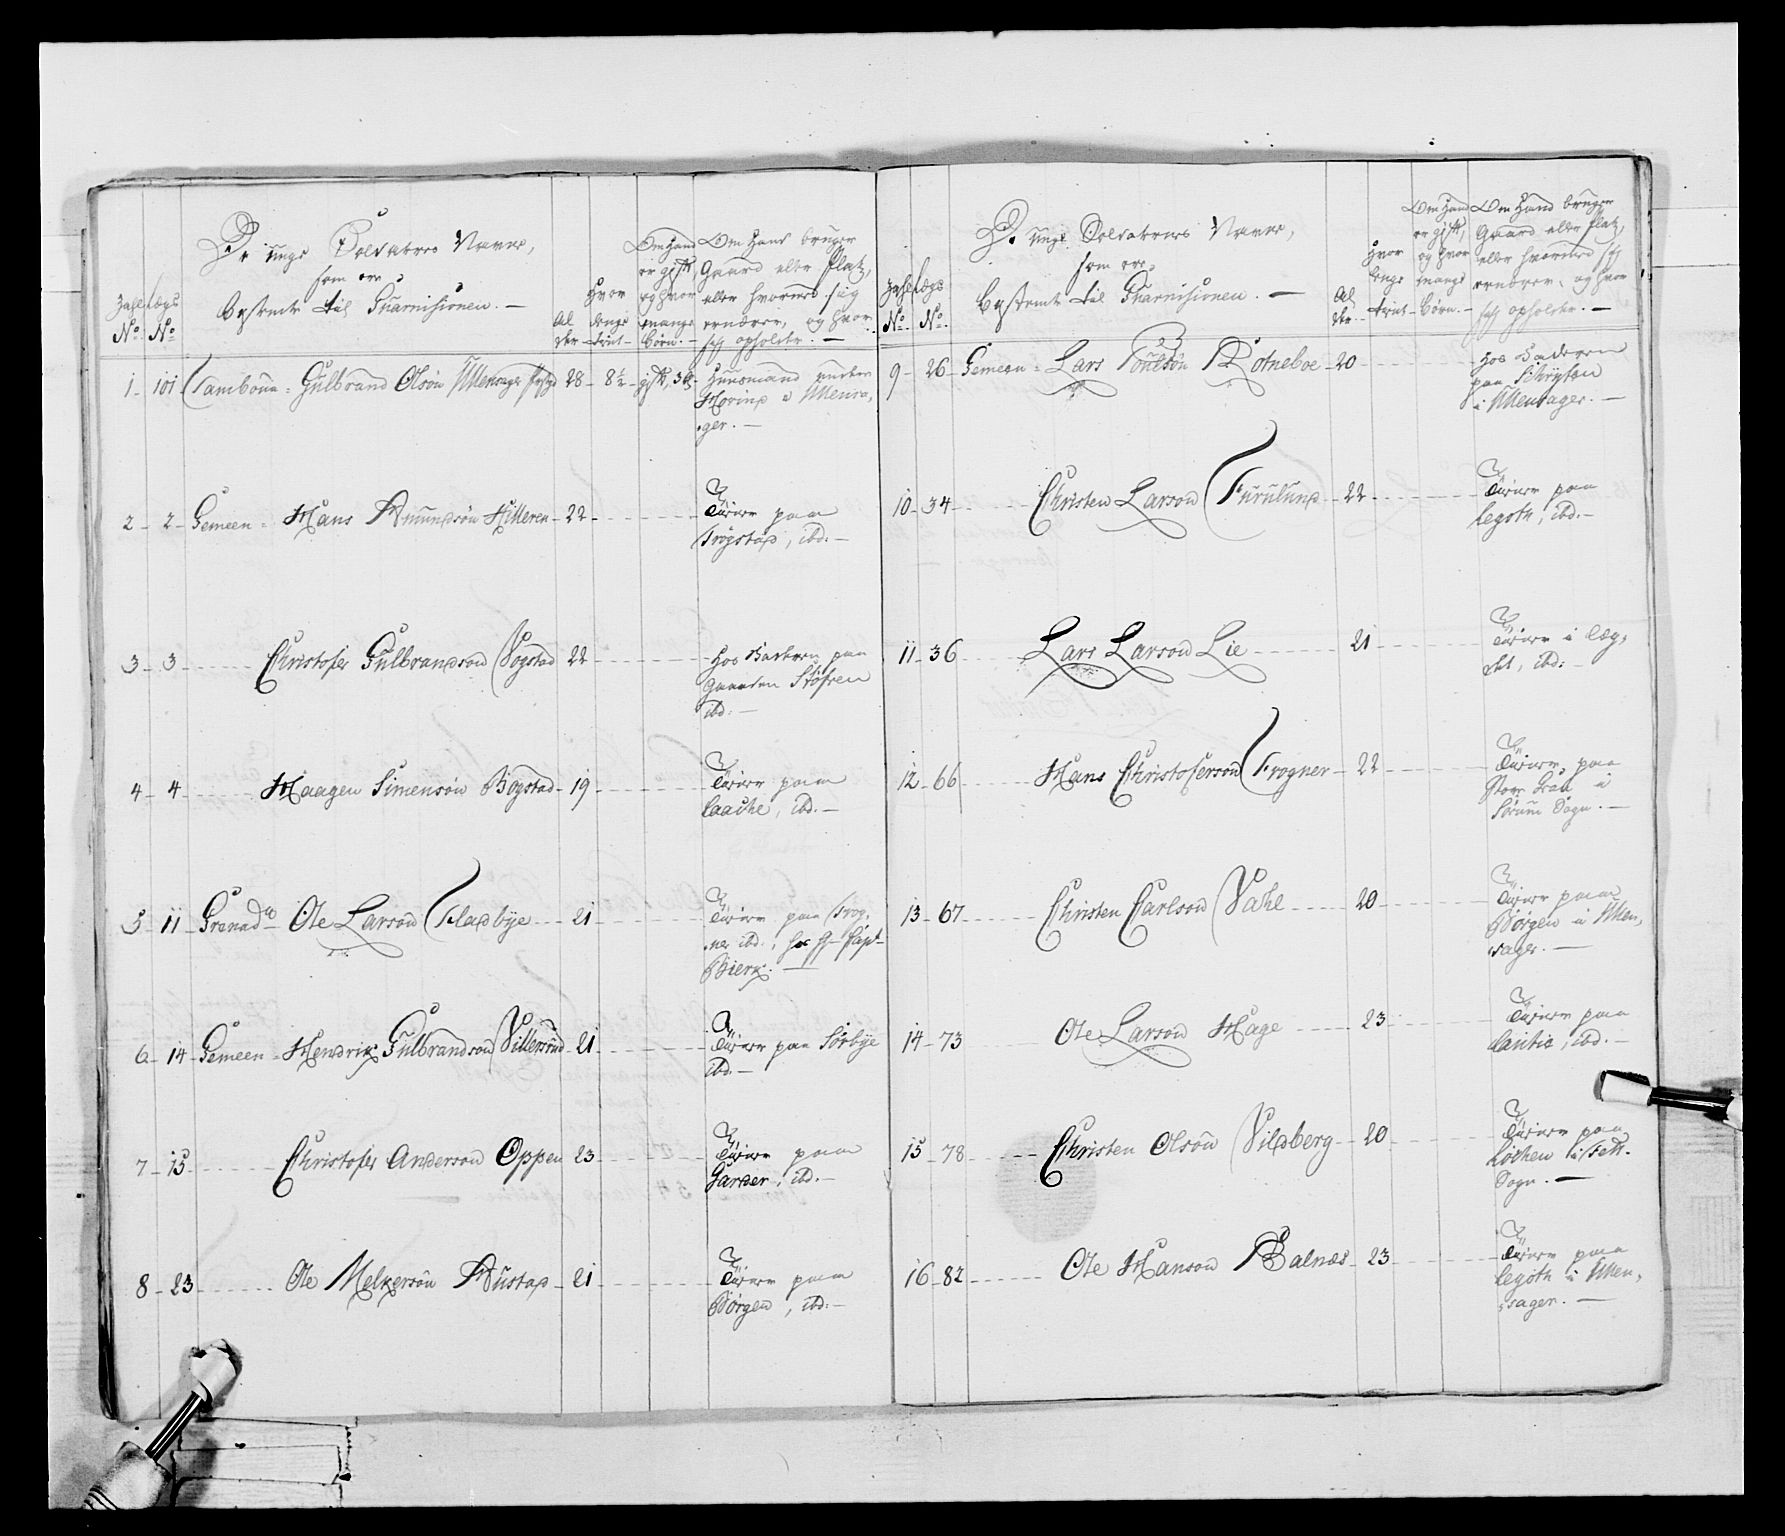 De unge Soldaters Navne,
som ere
bestemt til Guarnisionen. —
Zahl No
Lægs No
Alder
Hvor lenge tient
Om Hand er gift, og hvor mange Børn. —
Om Hand bruger
Gaard eller Platz,
eller hvormed sig
ernærer, og hvor
sig opholder. —
1 - 101 Tambour - Gulbrand Olsøn Ullensager 28 - 8½ - gift, 3 B. Huusmand under
i Ullensa,
ger. —
2 - 2 - Gemeen - Hans Amundsøn Hilleren - 22 - Tiener paa
Trøgstad, ibd. —
3 - 3 Christofer Gulbrandsøn Vogstad 22 hos Faderen paa
Gaarden
ibd. —
4 - 4 Haagen Simensøn Bogstad - 19 Tiener paa
Laache, ibd. —
5 - 11 Grenadr Ole Larsøn Fladbye 21 Tiener paa Frog,
ner ibd., hos Hr Capt
Bierk. —
6 - 14 - Gemeen - Hendrik Gulbrandsøn Villersrud - 21 Tiener paa Sørbye
ibd. —
7 - 15 Christofer Andersøn Oppen 23 Tiener paa
Garder, ibd. —
8 - 23 Ole Melkersøn Austad - 21 Tiener paa
Børgen, ibd. —
De unge Soldaters Navne,
som ere
bestemt til Guarnisionen. —
Zahl No
Lægs No
Alder
Hvor lenge tient
Om Hand er gift, og hvor mange Børn. —
Om Hand bruger
Gaard eller Platz,
eller hvormed sig
ernærer, og hvor
sig opholder. —
9 - 26 Gemeen - Lars Poulsøn Rotneboe - 20 hos Faderen
paa
i Ullensager. —
10 - 34 Christen Larsøn Furulund - 22 Tiener paa
Legoth, ibd. —
11 - 36 Lars Larsøn Lie 21 Tiener i Læg,
det, ibd: —
12 - 66 Hans Christofersøn Frogner - 22 Tiener paa
Store i
Sørum Sogn. —
13 - 67 Christen Carlsøn Vahe 20 Tiener paa
Børgen i Ullen,
sager. —
14 - 73 Ole Larsøn Hage 23 Tiener paa
ibd. —
15 - 78 Christen Olsøn Vilberg - 20 Tiener paa
Løchen i Fett
Sogn. —
16 - 82 Ole Hansøn Balnæs - 23 Tiener paa
Legoth i Ullen,
sager. —